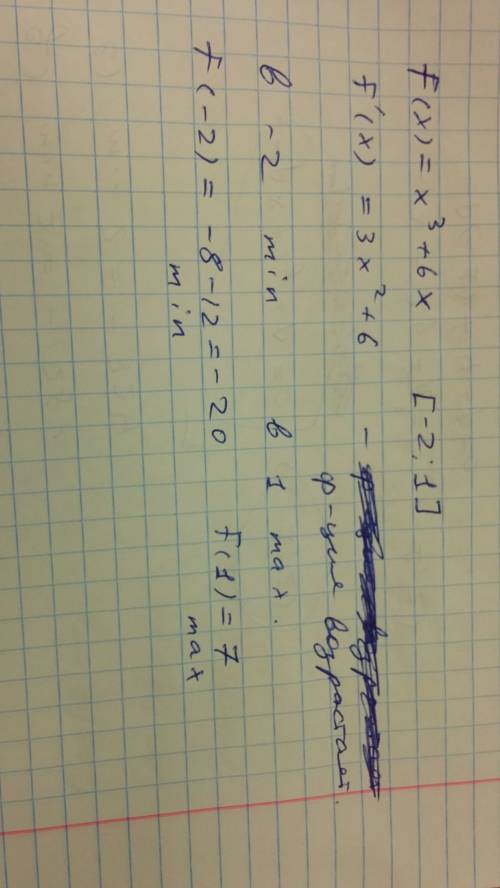 f(x) = x³ + 6x [-2; 1]
f'(x) = 3x² + 6 -
ф-ция возрастает.
в -2 min в 1 max.
f(-2) = -8 - 12 = -20 f(1) = 7
min max